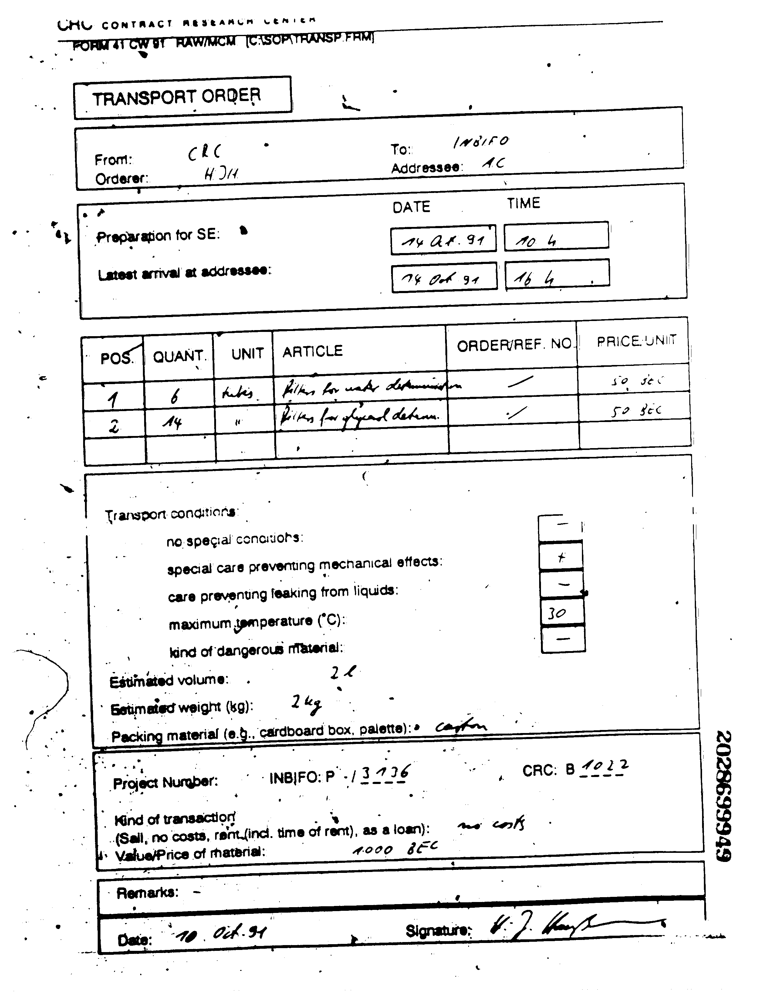 CRC CONTRACT RESEARCH CENTER
FORM 41 CW 91 RAW/MCM [C:\SOP\TRANSP.FRM]
TRANSPORT ORDER
From: CRC To: INBIFO
Orderer: HJH Addressee: AC
DATE TIME
Preparation for SE: 14 Oct. 91 10 h
Latest arrival at addressee: 14 Oct 91 16 h
POS. QUANT. UNIT ARTICLE ORDER/REF. NO. PRICE/UNIT
1 6 tubes. filters for water determination / 50 BEC
2 14 " filters for glycerol determ. / 50 BEC
Transport conditions:
no special conditions: -
special care preventing mechanical effects: +
care preventing leaking from liquids: -
maximum temperature (°C): 30
kind of dangerous material: -
Estimated volume: 2 l
Estimated weight (kg): 2 kg
Packing material (e.g., cardboard box, palette): carton
Project Number: INBIFO: P - / 3136 CRC: B 1022
Kind of transaction
(Sail, no costs, rent (incl. time of rent), as a loan): no costs
Value/Price of material: 1000 BEC
Remarks: -
Date: 10. Oct. 91 Signature: H. J.
2028699949